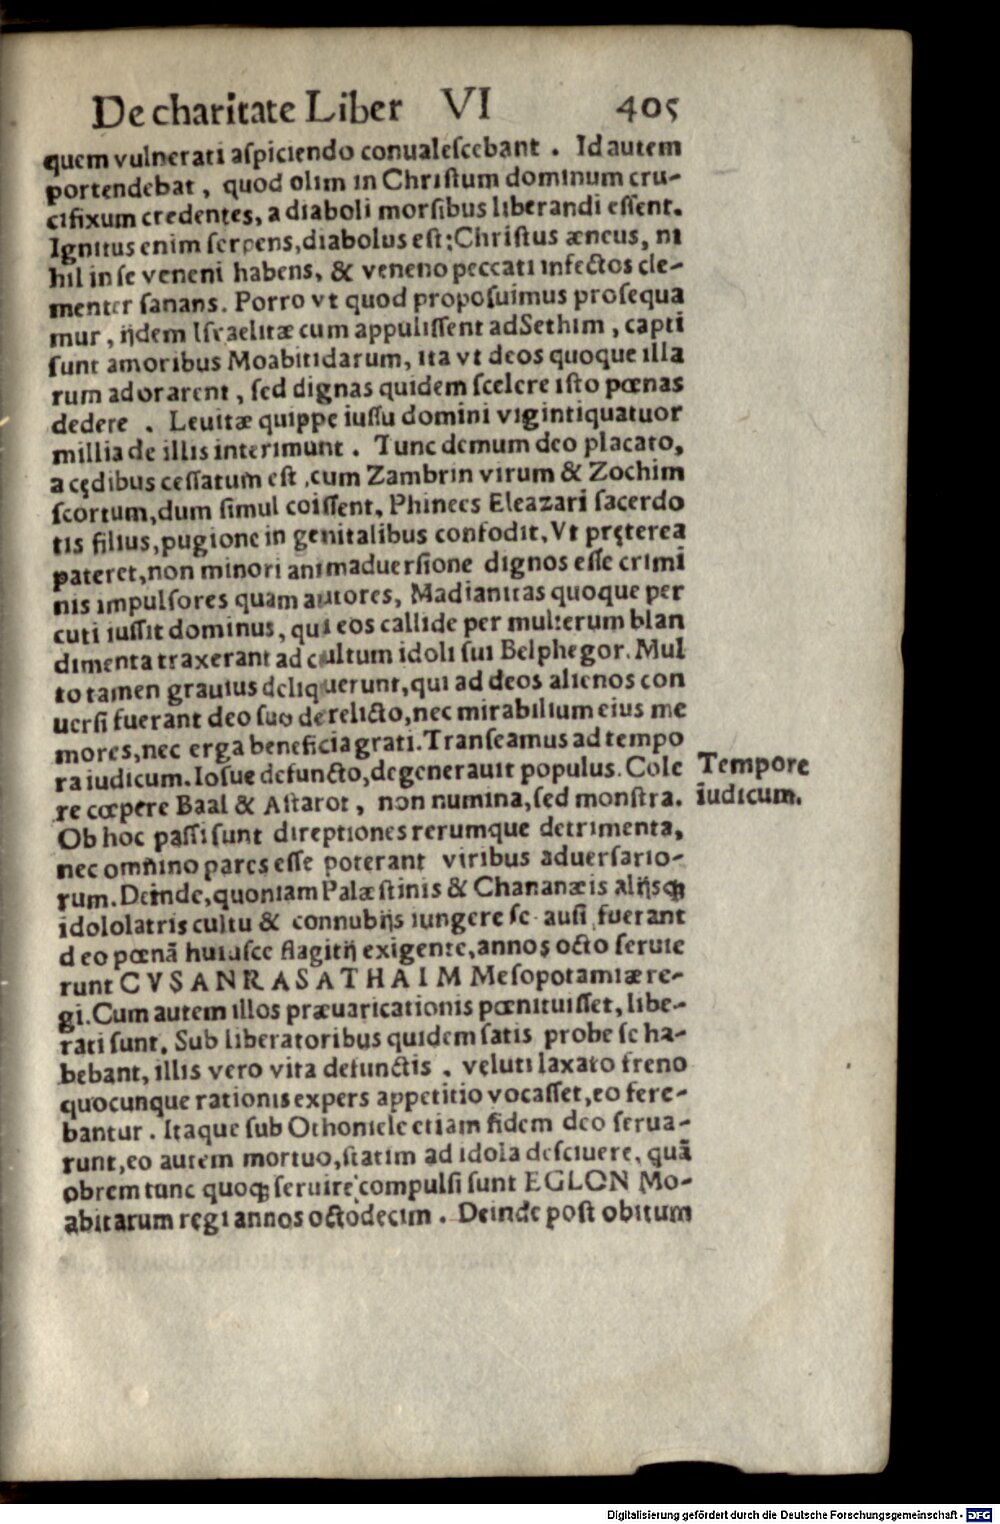 De charitate Liber VI 405
quem vulnerati aſpiciendo conualeſcebant . Id autem
portendebat , quod olim in Chriſtum dominum cru-
cifixum credentes, a diaboli morſibus liberandi eſſent.
Ignitus enim ſerpens, diabolus eſt: Chriſtus æneus, ni
hil in ſe veneni habens, & veneno peccati infectos cle-
menter ſanans. Porro vt quod propoſuimus proſequa
mur , ijdem Iſraelitæ cum appuliſſent ad Sethim , capti
ſunt amoribus Moabitidarum, ita vt deos quoque illa
rum adorarent , ſed dignas quidem ſcelere iſto pœnas
dedere . Leuitæ quippe iuſſu domini vigintiquatuor
millia de illis interimunt . Tunc demum deo placato,
a cędibus ceſſatum eſt , cum Zambrin virum & Zochim
ſcortum, dum ſimul coiſſent, Phinees Eleazari ſacerdo
tis filius, pugione in genitalibus confodit. Vt pręterea
pateret, non minori animaduerſione dignos eſſe crimi
nis impulſores quam autores, Madianitas quoque per
cuti iuſſit dominus, qui eos callide per mulierum blan
dimenta traxerant ad cultum idoli ſui Belphegor. Mul
to tamen grauius deliquerunt, qui ad deos alienos con
uerſi fuerant deo ſuo derelicto, nec mirabilium eius me
mores, nec erga beneficia grati. Tranſeamus ad tempo
ra iudicum. Ioſue defuncto, degenerauit populus. Cole
Tempore
re cœpere Baal & Aſtarot , non numina, ſed monſtra.
iudicum.
Ob hoc paſſi ſunt direptiones rerumque detrimenta,
nec omnino pares eſſe poterant viribus aduerſario-
rum. Deinde, quoniam Palæſtinis & Chananæis alijsqꝫ
idololatris cultu & connubijs iungere ſe auſi fuerant
deo pœnā huiuſce flagitij exigente, annos octo ſeruie
runt CVSANRASATHAIM Meſopotamiæ re-
gi. Cum autem illos præuaricationis pœnituiſſet, libe-
rati ſunt. Sub liberatoribus quidem ſatis probe ſe ha-
bebant, illis vero vita defunctis . veluti laxato freno
quocunque rationis expers appetitio vocaſſet, eo fere-
bantur . Itaque ſub Othoniele etiam fidem deo ſerua-
runt, eo autem mortuo, ſtatim ad idola deſciuere, quā
obrem tunc quoqꝫ ſeruire compulſi ſunt EGLON Mo-
abitarum regi annos octodecim . Deinde poſt obitum
Digitalisierung gefördert durch die Deutsche Forschungsgemeinschaft - DFG